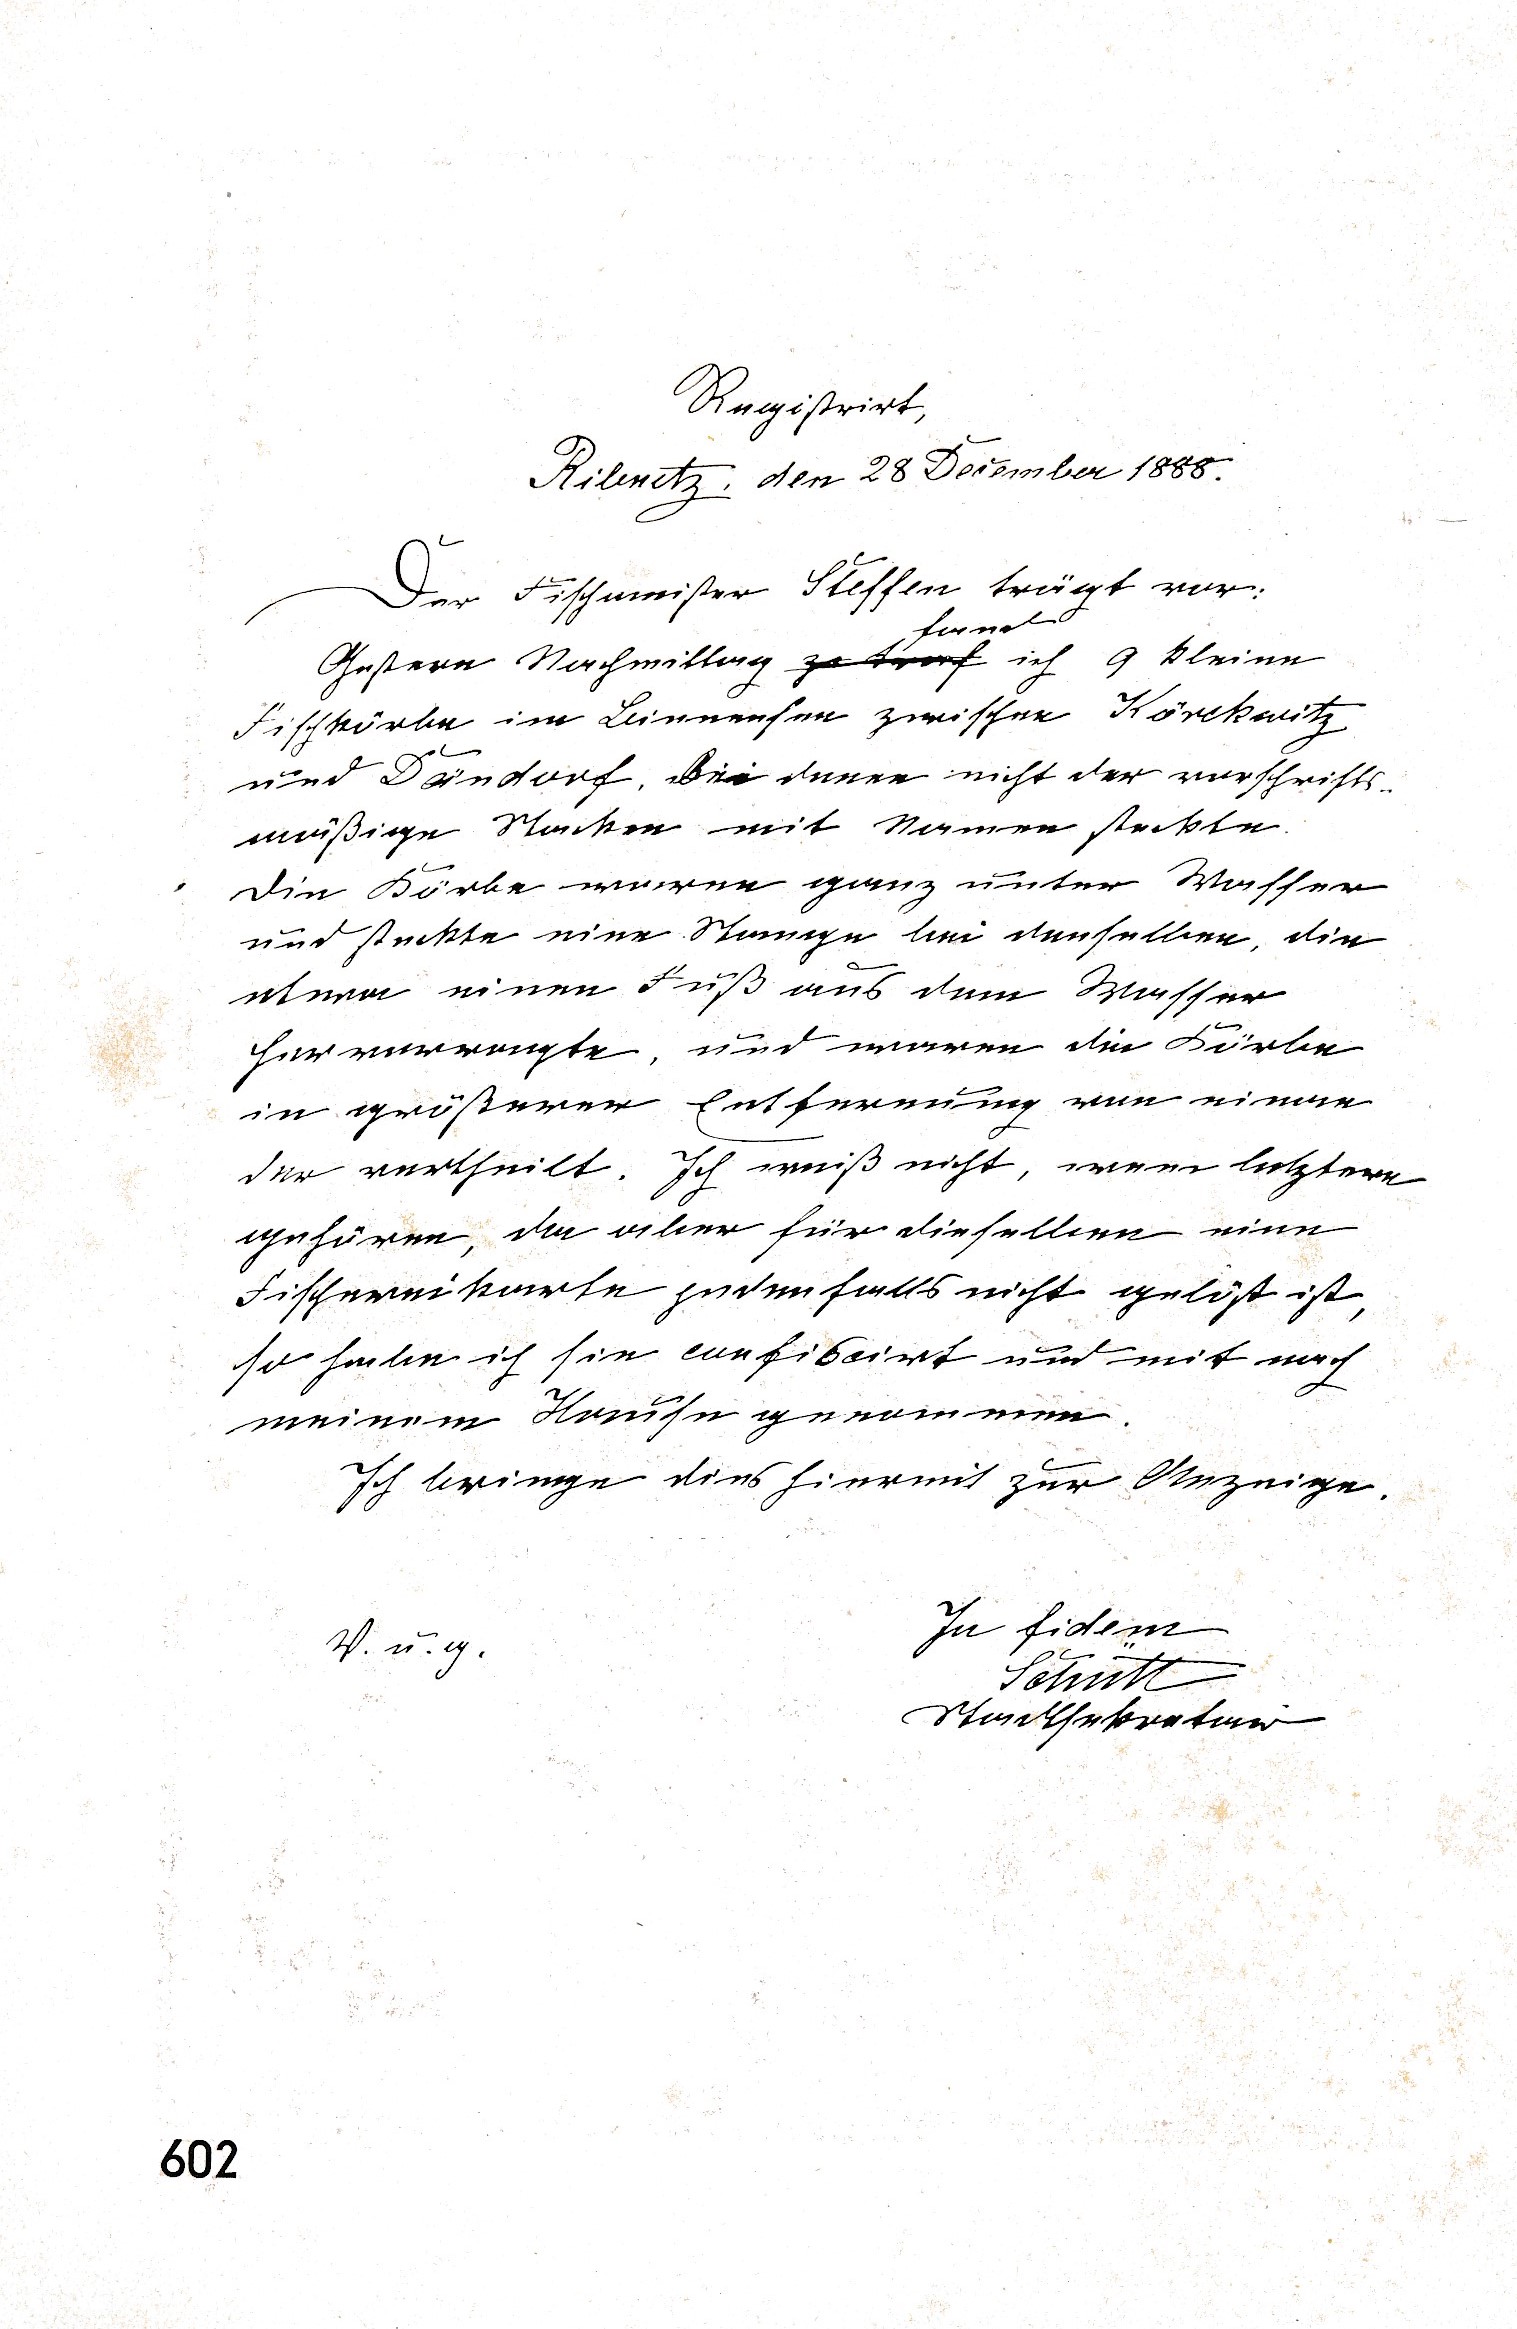 Registrirt,
Ribnitz, den 28 December 1888.
Der Fischmeister Steffen trägt vor:
fand
Gestern Nachmittag zo traf ich 9 kleine
Fischkörbe im Binnensee zwischen Körckwitz
und Dändorf, bei denen nicht der vorschrifts-
mäßige Stacken mit Namen steckte.
Die Körbe waren ganz unter Wasser
und steckte eine Stange bei denselben, die
etwa einen Fuß aus dem Wasser
hervorragte, und waren die Körbe
in größerer Entfernung von einan
der vertheilt. Ich weiß nicht, wem letztere
gehören, da aber für dieselben eine
Fischereikarte jedenfalls nicht gelöst ist,
so habe ich sie confiscirt und mit nach
meinem Hause genommen.
Ich bringe dies hiermit zur Anzeige.
V. u. g.
In fidem
Schütt
Stadtsekretair
602